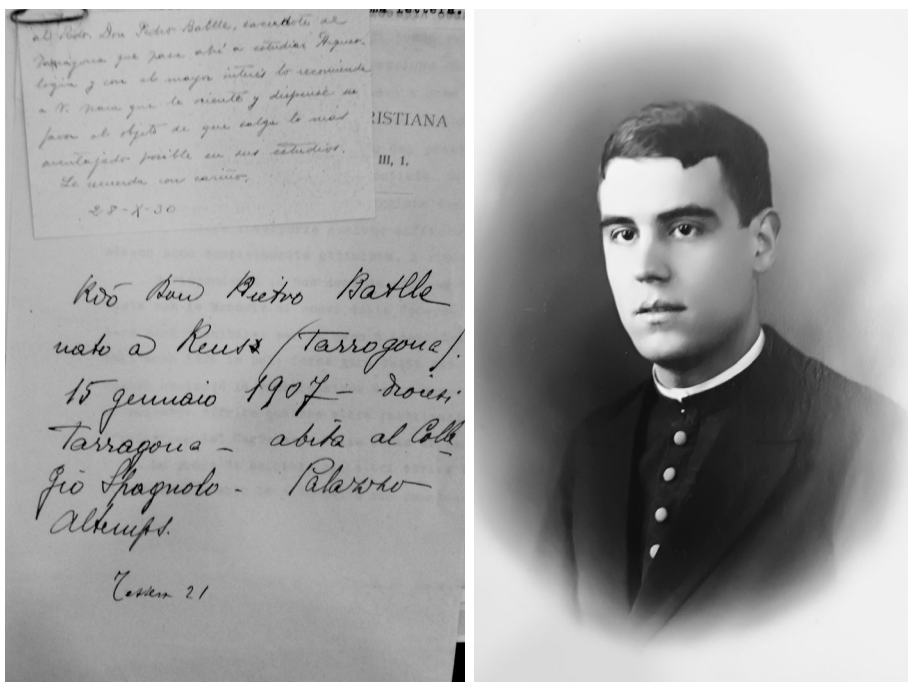 ma lettera.
al Rdo. Don Pedro Batlle, sacerdote de
Tarragona que pasa ahí a estudiar Arqueo-
logia y con el mayor interés lo recomienda
a V. para que le oriente y dispense su
favor al objeto de que salga lo más
aventajado posible en sus estudios.
Le recuerda con cariño.
28-X-30
RISTIANA
III, 1,
Rdo Don Pietro Batlle
nato a Reus (Tarragona).
15 gennaio 1907 – diocesi
Tarragona – abita al Colle-
gio Spagnolo – Palazzo
Altemps.
Tessera 21